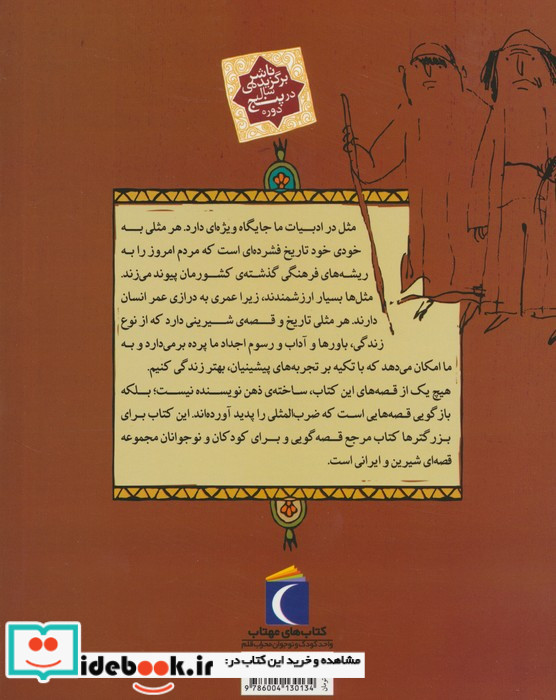 ناشر
برگزیده‌ی
سال
در پنج
دوره
مثل در ادبیات ما جایگاه ویژه‌ای دارد. هر مثلی به
خودی خود تاریخ فشرده‌ای است که مردم امروز را به
ریشه‌های فرهنگی گذشته‌ی کشورمان پیوند می‌زند.
مثل‌ها بسیار ارزشمندند، زیرا عمری به درازی عمر انسان
دارند. هر مثلی تاریخ و قصه‌ی شیرینی دارد که از نوع
زندگی، باورها و آداب و رسوم اجداد ما پرده برمی‌دارد و به
ما امکان می‌دهد که با تکیه بر تجربه‌های پیشینیان، بهتر زندگی کنیم.
هیچ یک از قصه‌های این کتاب، ساخته‌ی ذهن نویسنده نیست؛ بلکه
بازگویی قصه‌هایی است که ضرب‌المثلی را پدید آورده‌اند. این کتاب برای
بزرگترها کتاب مرجع قصه‌گویی و برای کودکان و نوجوانان مجموعه
قصه‌ای شیرین و ایرانی است.
کتاب‌های مهتاب
واحد کودک و نوجوان محراب قلم
مشاهده و خرید این کتاب در:
idebook.ir
تومان
9 786004 130134